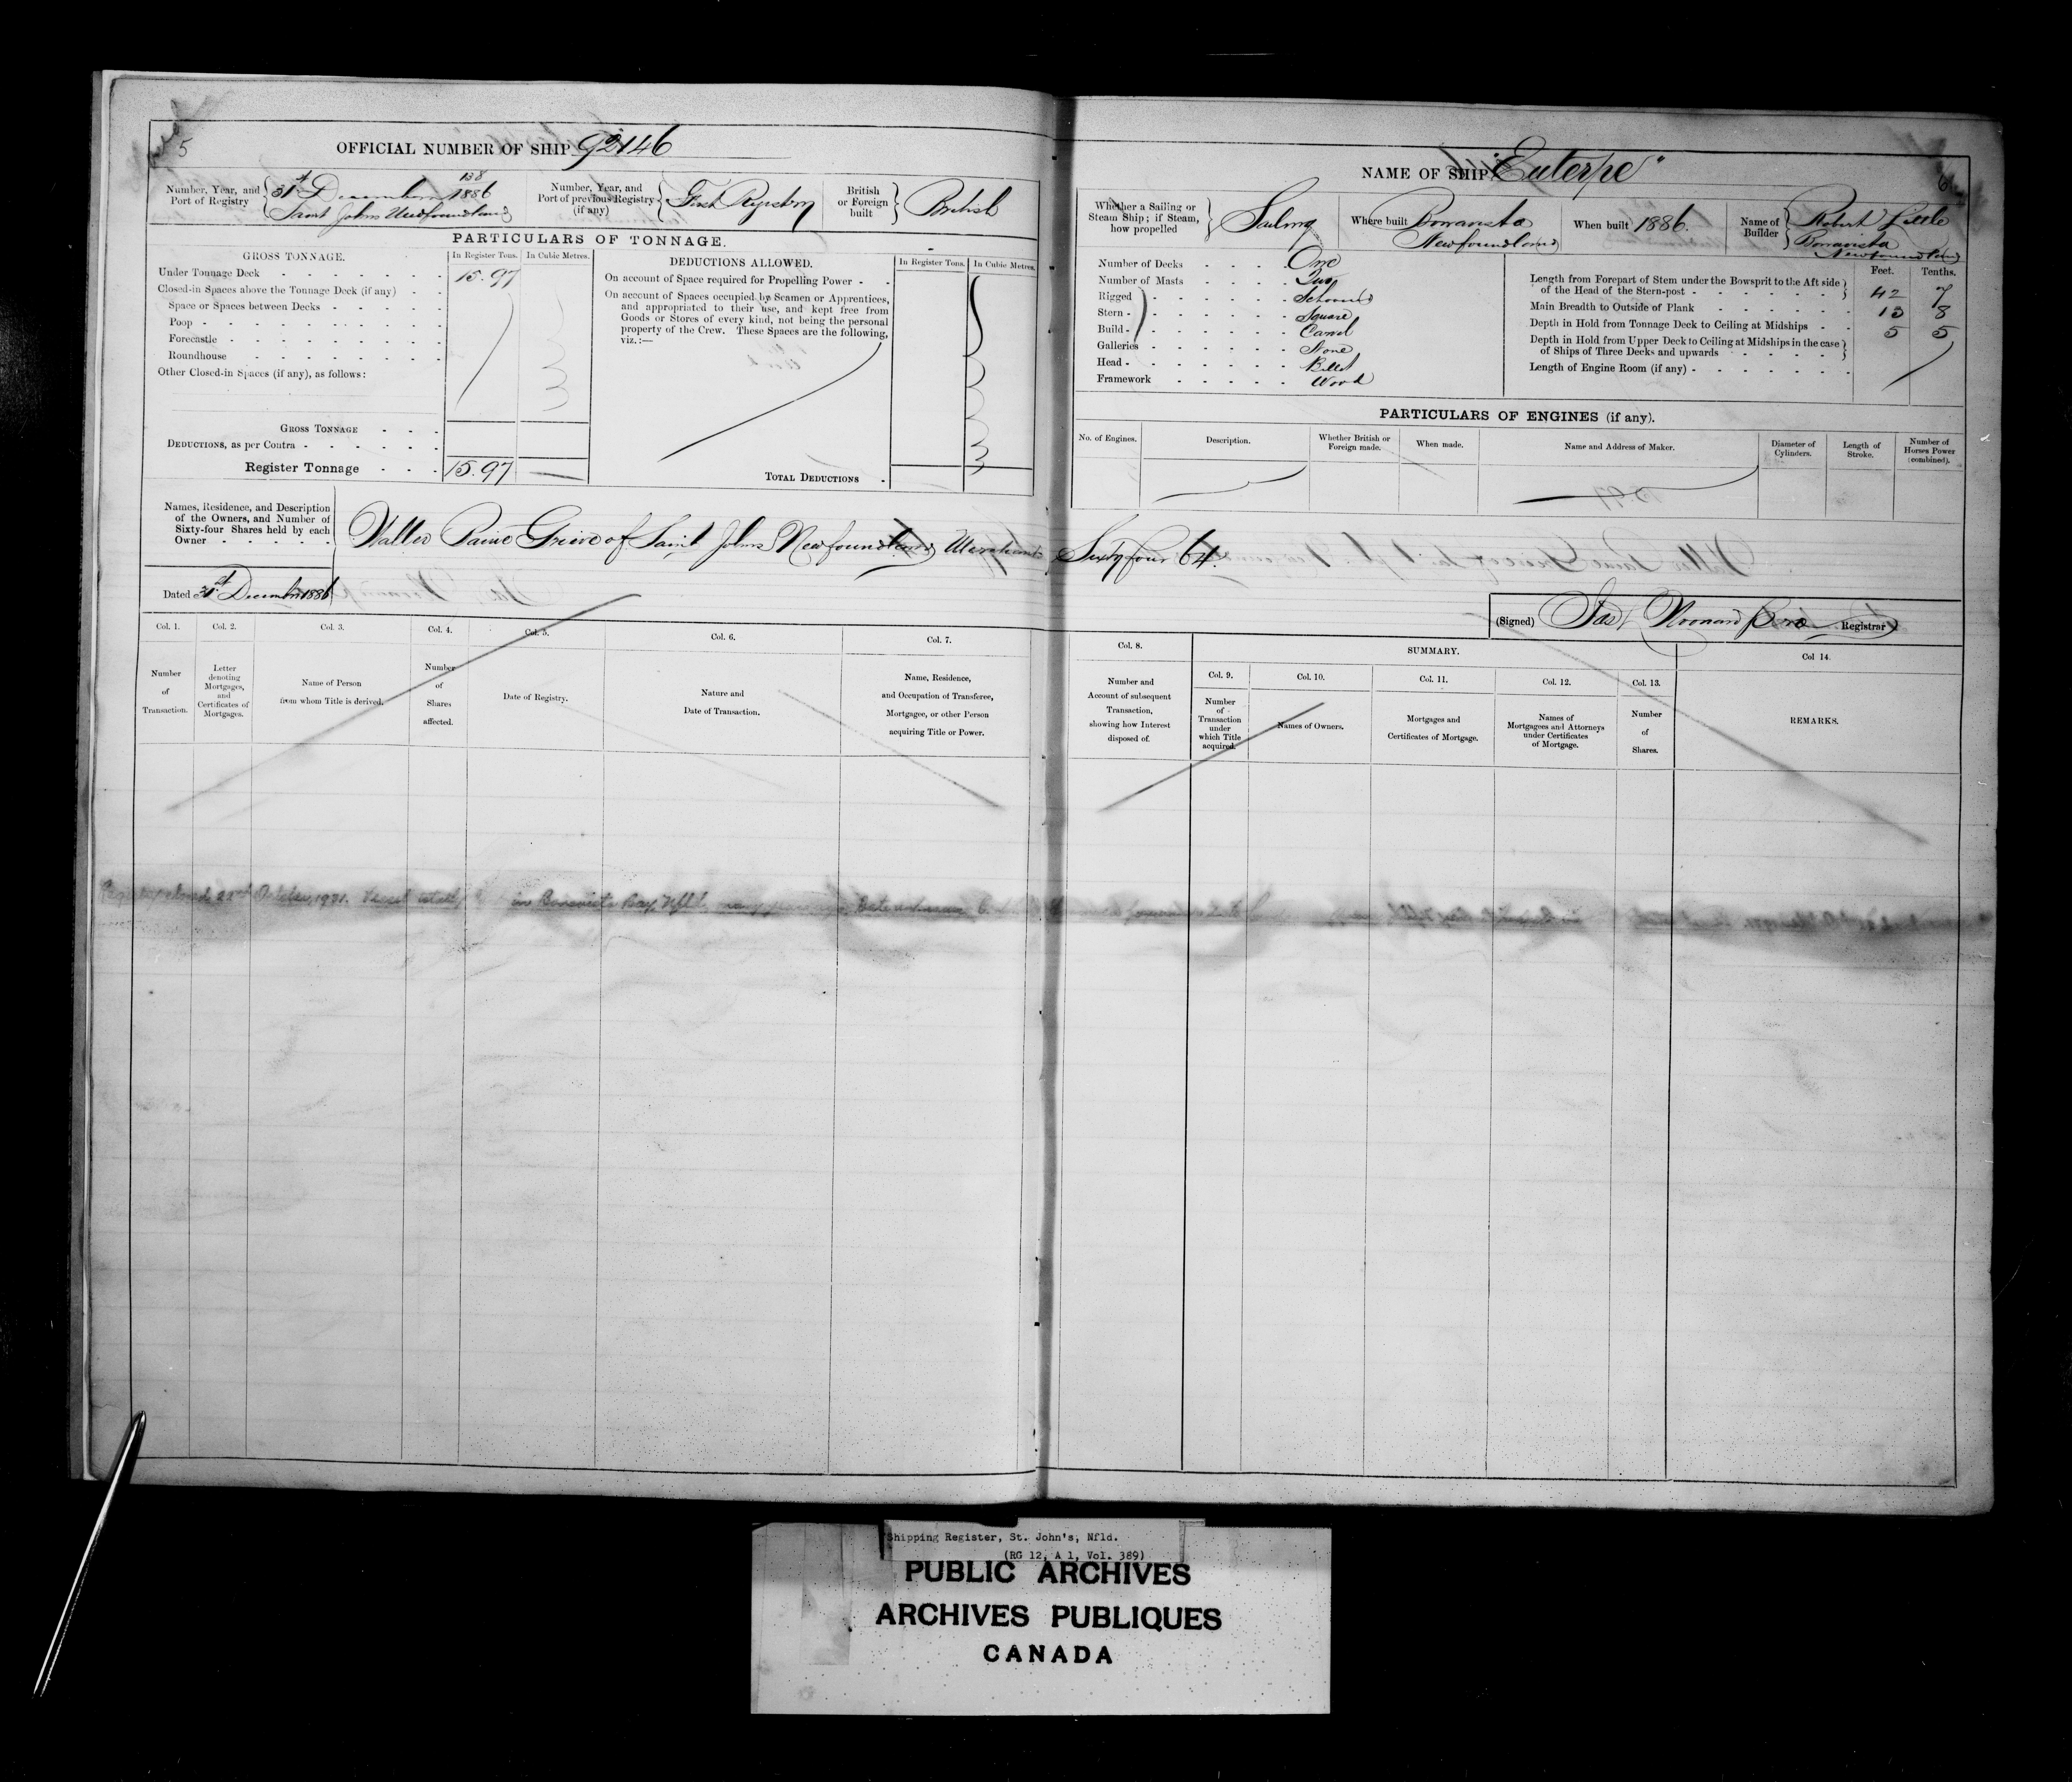 5
OFFICIAL NUMBER OF SHIP 92146
Number, Year, and Port of Registry
138
31st December 1886
Saint Johns Newfoundland
Number, Year, and Port of previous Registry (if any)
First Registry
British or Foreign built
British
PARTICULARS OF TONNAGE.
GROSS TONNAGE.
In Register Tons.
In Cubic Metres.
Under Tonnage Deck 15.97
Closed-in Spaces above the Tonnage Deck (if any)
Space or Spaces between Decks
Poop
Forecastle
Roundhouse
Other Closed-in Spaces (if any), as follows:
GROSS TONNAGE
DEDUCTIONS, as per Contra
Register Tonnage 15.97
DEDUCTIONS ALLOWED.
In Register Tons.
In Cubic Metres.
On account of Space required for Propelling Power
On account of Spaces occupied by Seamen or Apprentices,
and appropriated to their use, and kept free from
Goods or Stores of every kind, not being the personal
property of the Crew. These Spaces are the following,
viz.:—
TOTAL DEDUCTIONS
NAME OF SHIP "Euterpe"
6
Whether a Sailing or Steam Ship; if Steam, how propelled
Sailing
Where built
Bonavista
Newfoundland
When built 1886.
Name of Builder
Robert Little
Bonavista
Newfoundland
Number of Decks One
Number of Masts Two
Rigged Schooner
Stern Square
Build Carvel
Galleries None
Head Billet
Framework Wood
Feet. Tenths.
Length from Forepart of Stem under the Bowsprit to the Aft side
of the Head of the Stern-post 42 7
Main Breadth to Outside of Plank 13 8
Depth in Hold from Tonnage Deck to Ceiling at Midships 5 5
Depth in Hold from Upper Deck to Ceiling at Midships in the case
of Ships of Three Decks and upwards
Length of Engine Room (if any)
PARTICULARS OF ENGINES (if any).
No. of Engines.
Description.
Whether British or Foreign made.
When made.
Name and Address of Maker.
Diameter of Cylinders.
Length of Stroke.
Number of Horses Power (combined).
Names, Residence, and Description
of the Owners, and Number of
Sixty-four Shares held by each
Owner
Walter Baine Grieve of Saint Johns Newfoundland Merchant Sixty four 64.
Dated 31st December 1886
(Signed) Registrar
Col. 1.
Number of Transaction.
Col. 2.
Letter denoting Mortgages, and Certificates of Mortgages.
Col. 3.
Name of Person from whom Title is derived.
Col. 4.
Number of Shares affected.
Col. 5.
Date of Registry.
Col. 6.
Nature and Date of Transaction.
Col. 7.
Name, Residence, and Occupation of Transferee, Mortgagee, or other Person acquiring Title or Power.
Col. 8.
Number and Account of subsequent Transaction, showing how Interest disposed of.
SUMMARY.
Col. 9.
Number of Transaction under which Title acquired.
Col. 10.
Names of Owners.
Col. 11.
Mortgages and Certificates of Mortgage.
Col. 12.
Names of Mortgagees and Attorneys under Certificates of Mortgage.
Col. 13.
Number of Shares.
Col 14.
REMARKS.
Registry closed 22nd October, Vessel in Bonavista Bay, Nfld.
Shipping Register, St. John's, Nfld.
(RG 12, A 1, Vol. 389)
PUBLIC ARCHIVES
ARCHIVES PUBLIQUES
CANADA